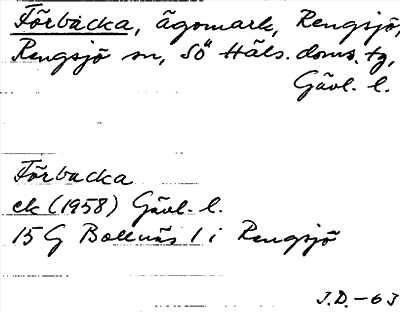 Förbacka, ägomark, Rengsjö,
Rengsjö sn, Sö Häls. doms. tg,
Gävl. l.
Förbacka
ek (1958) Gävl. l.
15 G Bollnäs 1 i Rengsjö
J.D. -63